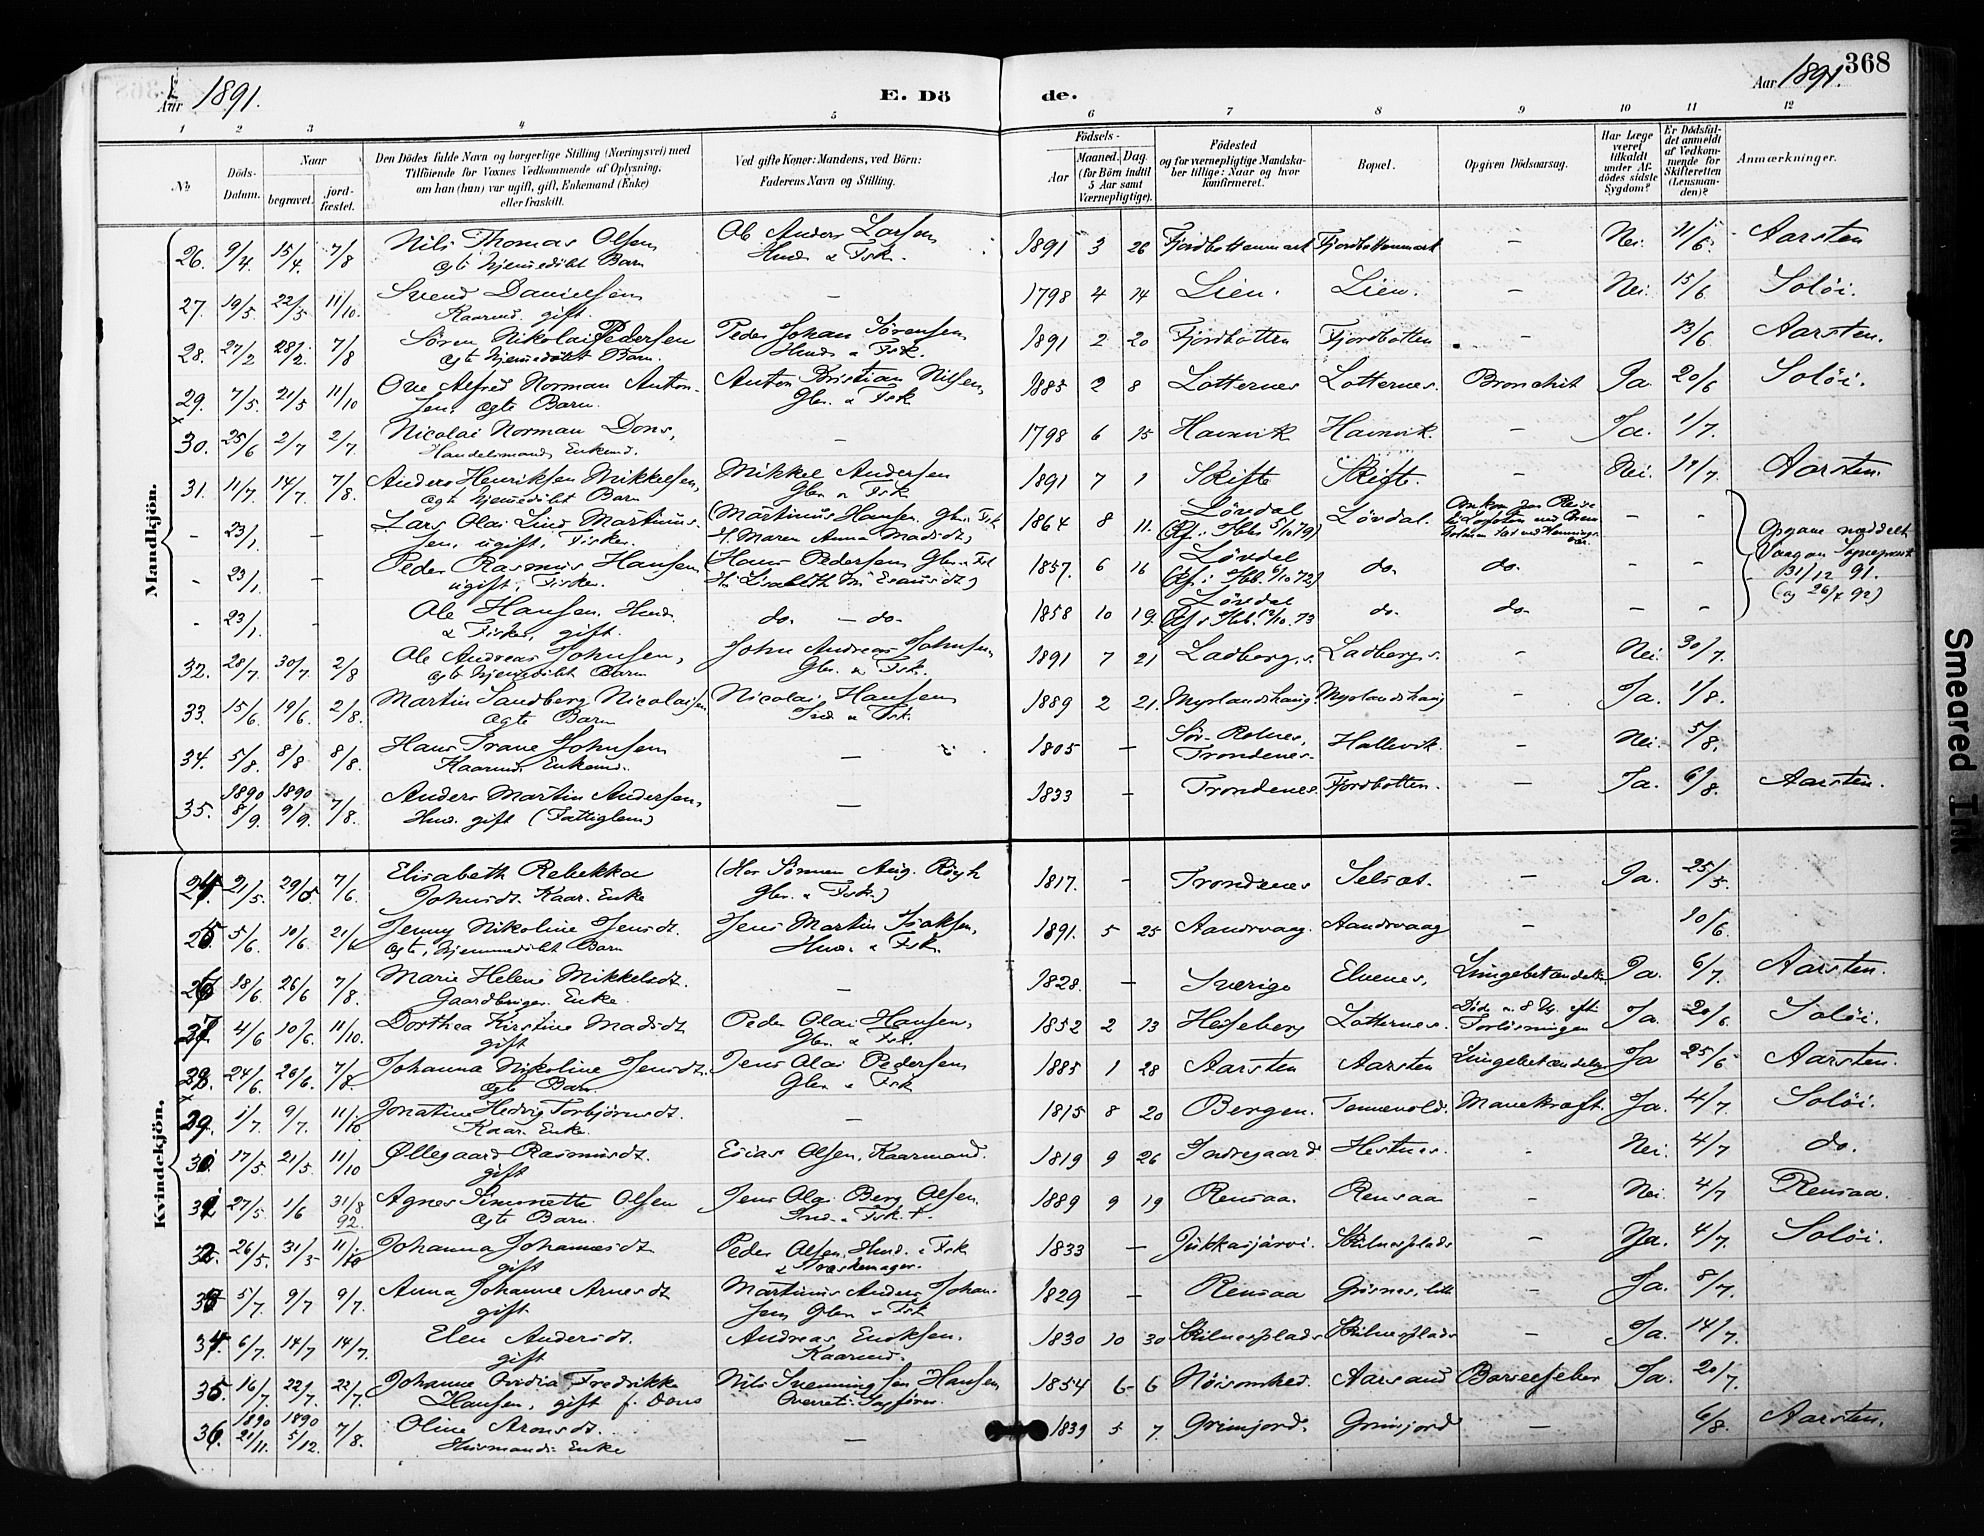 Aar 1891.
E. Dö
de.
Aar 1891.
368
1 2 3 4 5 6 7 8 9 10 11 12
No
Döds-Datum.
Naar
begravet.
jord-fæstet.
Den Dödes fulde Navn og borgerlige Stilling (Næringsvei) med
Tilföiende for Voxnes Vedkommende af Oplysning,
om han (hun) var ugift, gift, Enkemand (Enke)
eller fraskilt.
Ved gifte Koner: Mandens, ved Börn:
Faderens Navn og Stilling.
Födsels-
Aar
Maaned. Dag.
(for Börn indtil
5 Aar samt
Værnepligtige).
Födested
og for værnepligtige Mandska-
ber tillige: Naar og hvor
konfirmeret.
Bopæl.
Opgiven Dödsaarsag.
Har Læge
været
tilkaldt
under Af-
dödes sidste
Sygdom?
Er Dödsfal-
det anmeldt
af Vedkom-
mende for
Skifteretten
(Lensman-
den)?
Anmærkninger.
Mandkjön.
26. 9/4. 15/4. 7/8 Nils Thomas Olsen Ole Anders Larsen 1891 3 26 Fjordbottenmark Fjordbottenmark – Nei. 11/6. Aarsten
ægte hjemmedöbt Barn Husm. & Fisk.
27. 19/5. 22/5 11/10. Svend Danielsen – 1798 4 14 Lien. Lien. – Nei. 15/6 Soløi.
Kaarmd. gift.
28. 27/2 28/2. 7/8 Søren Nikolai Pedersen Peder Johan Sørensen 1891 2 20 Fjordbotten Fjordbotten – 13/6 Aarsten.
ægte hjemmedöbt Barn. Husm. & Fisk.
29. 7/5. 21/5 11/10 Ove Alfred Norman Anton- Anton Kristian Nilsen, 1885 2 8 Lotternes Lotternes. Bronchit Ja. 20/6 Soløi.
sen, ægte Barn. Gbr. & Fisk
30. 25/6 2/7 2/7. Nicolai Norman Dons, – 1798 6 15 Havnvik Havnvik. – Ja. 1/7.
Handelsmand, Enkemd.
31. 11/7. 14/7. 7/8. Anders Henriksen Mikkelsen, Mikkel Andersen 1891 7 1 Skifte Skifte. – Nei. 11/7. Aarsten.
ægte hjemmedöbt Barn Gbr. & Fisk
– 23/1. – Lars Olai Lind Martinus- (Martinus Hansen Gbr. & Fisk 1864 8 11. Løvdal Løvdal. Omkom paa Reise – –
sen, ugift, Fisker. H. Maren Anna Madsdt.) (Kf. i Ibb. 5/10 79)
– 23/1. – Peder Rasmus Hansen (Hans Pedersen Gbr. & Fisk 1857. 6 16 Løvdal do. do. – –
ugift, Fisker. (Kf. i Ibb. 6/10 72)
– 23/1. – Ole Hansen, Husm. do. – do. 1858 10 19. Løvdal do. do. – –
& Fisker, gift. (Kf. i Ibb. 12/10. 73
31/12 91.
(og 26/7 92)
32. 28/7. 30/7. 2/8 Ole Andreas Johnsen, John Andreas Johnsen, 1891 7 21 Ladberg, s. Ladberg s. – Nei. 30/7.
ægte hjemmedöbt Barn Gbr. & Fisk.
33. 15/6. 19/6. 2/8. Martin Sandberg Nicolaisen Nicolai Hansen 1889 2 21. Myrlandshaug. Myrlandshaug – Ja. 1/8.
ægte Barn Ind. & Fisk.
34. 5/8. 8/8 8/8. Hans Trane Johnsen – 1805 – Sör-Rolnes, Hallevik. – Nei. 5/8.
Kaarmd. Enkemd. Trondenes.
35. 1890 8/9. 1890 9/9. 7/8. Anders Martin Andersen, – 1833 – Trondenes Fjordbotten. – Ja. 6/8. Aarsten.
Husm. gift (Fattiglem)
Kvindekjön.
24. 21/5. 29/5 7/6 Elisabeth Rebekka (Hos Sörmen Aug. Rögh 1817. – Trondenes Selsæt. – Ja. 25/5.
Johnsdt. Kaar. Enke Gbr. & Fisk.)
25 5/6 10/6. 21/6 Jenny Nikoline Jensdt. Jens Martin Isaksen, 1891. 5 25 Aandvaag. Aandvaag – 10/6.
ægte, hjemmedöbt Barn Husm. & Fisk.
26 18/6. 26/6 7/8. Marie Helene Mikkelsdt. – 1828. – Sverige Elvenes, Lungebetændelse Ja. 6/7. Aarsten.
Gaardbruger. Enke.
27 4/6 10/6. 11/10. Dorthea Kirstine Madsdt. Peder Olai Hansen, 1852 2 13 Hesseberg Lotternes. Döde n. 8 Dg. efter Ja. 20/6 Soløi.
gift Gbr. & Fisk. Forlösningen
28. 24/6. 26/6. 7/8. Johanna Nikoline Jensdt. Jens Olai Pedersen 1885 1 28 Aarsten Aarsten Lungebetændelse Ja 25/6 Aarsten.
ægte Barn Gbr. & Fisk
29. 1/7. 9/7. 11/10 Jonatine Hedvig Torbjørnsdt. – 1815 8 20 Bergen. Tennevold. Marekraft. Ja. 4/7. Soløi.
Kaar. Enke.
30. 17/5. 21/5. 11/10 Øllegaard Rasmusdt. Esias Olsen, Kaarmand. 1819 9 26 Indregaard Hestnes. – Nei. 4/7 do.
gift
31 27/5. 1/6 31/8 92. Agnes Simonette Olsen Jens Olai Berg Olsen. 1889 9 19 Rensaa. Rensaa – Nei. 4/7 Rensaa.
ægte Barn. Ind. & Fisk.
32 26/5. 31/5 11/10 Johanna Johannesdt. Peder Olsen, Husm. & Fisk 1833 – Jukkasjärvi. – Ja. 4/7. Soløi.
gift
33 5/7. 9/7 9/7. Anna Johanne Arnesdt. Martinus Anders Johan- 1829 – Rensaa Grøsnes, – Ja. 8/7.
gift. sen Gbr. & Fisk
34. 6/7. 14/7 14/7. Elen Andersdt. Andreas Eriksen. 1830 10 30 – Ja. 14/7.
gift Kaarmd.
35 16/7. 22/7. 22/7. Johanne Ovidia Fredrikke Nils Svenningsen Hansen 1854 6 6 Nöisomhed. Aarsand Barselfeber Ja. 20/7.
Hansen, gift f. Dons Overrets Sagförer.
36. 1890 21/11. 1890 5/12. 7/8. Oline Aronsdt. – 1839 5 7. Grimjord Grimjord – 6/8. Aarsten.
Husmands Enke
Smeared Ink